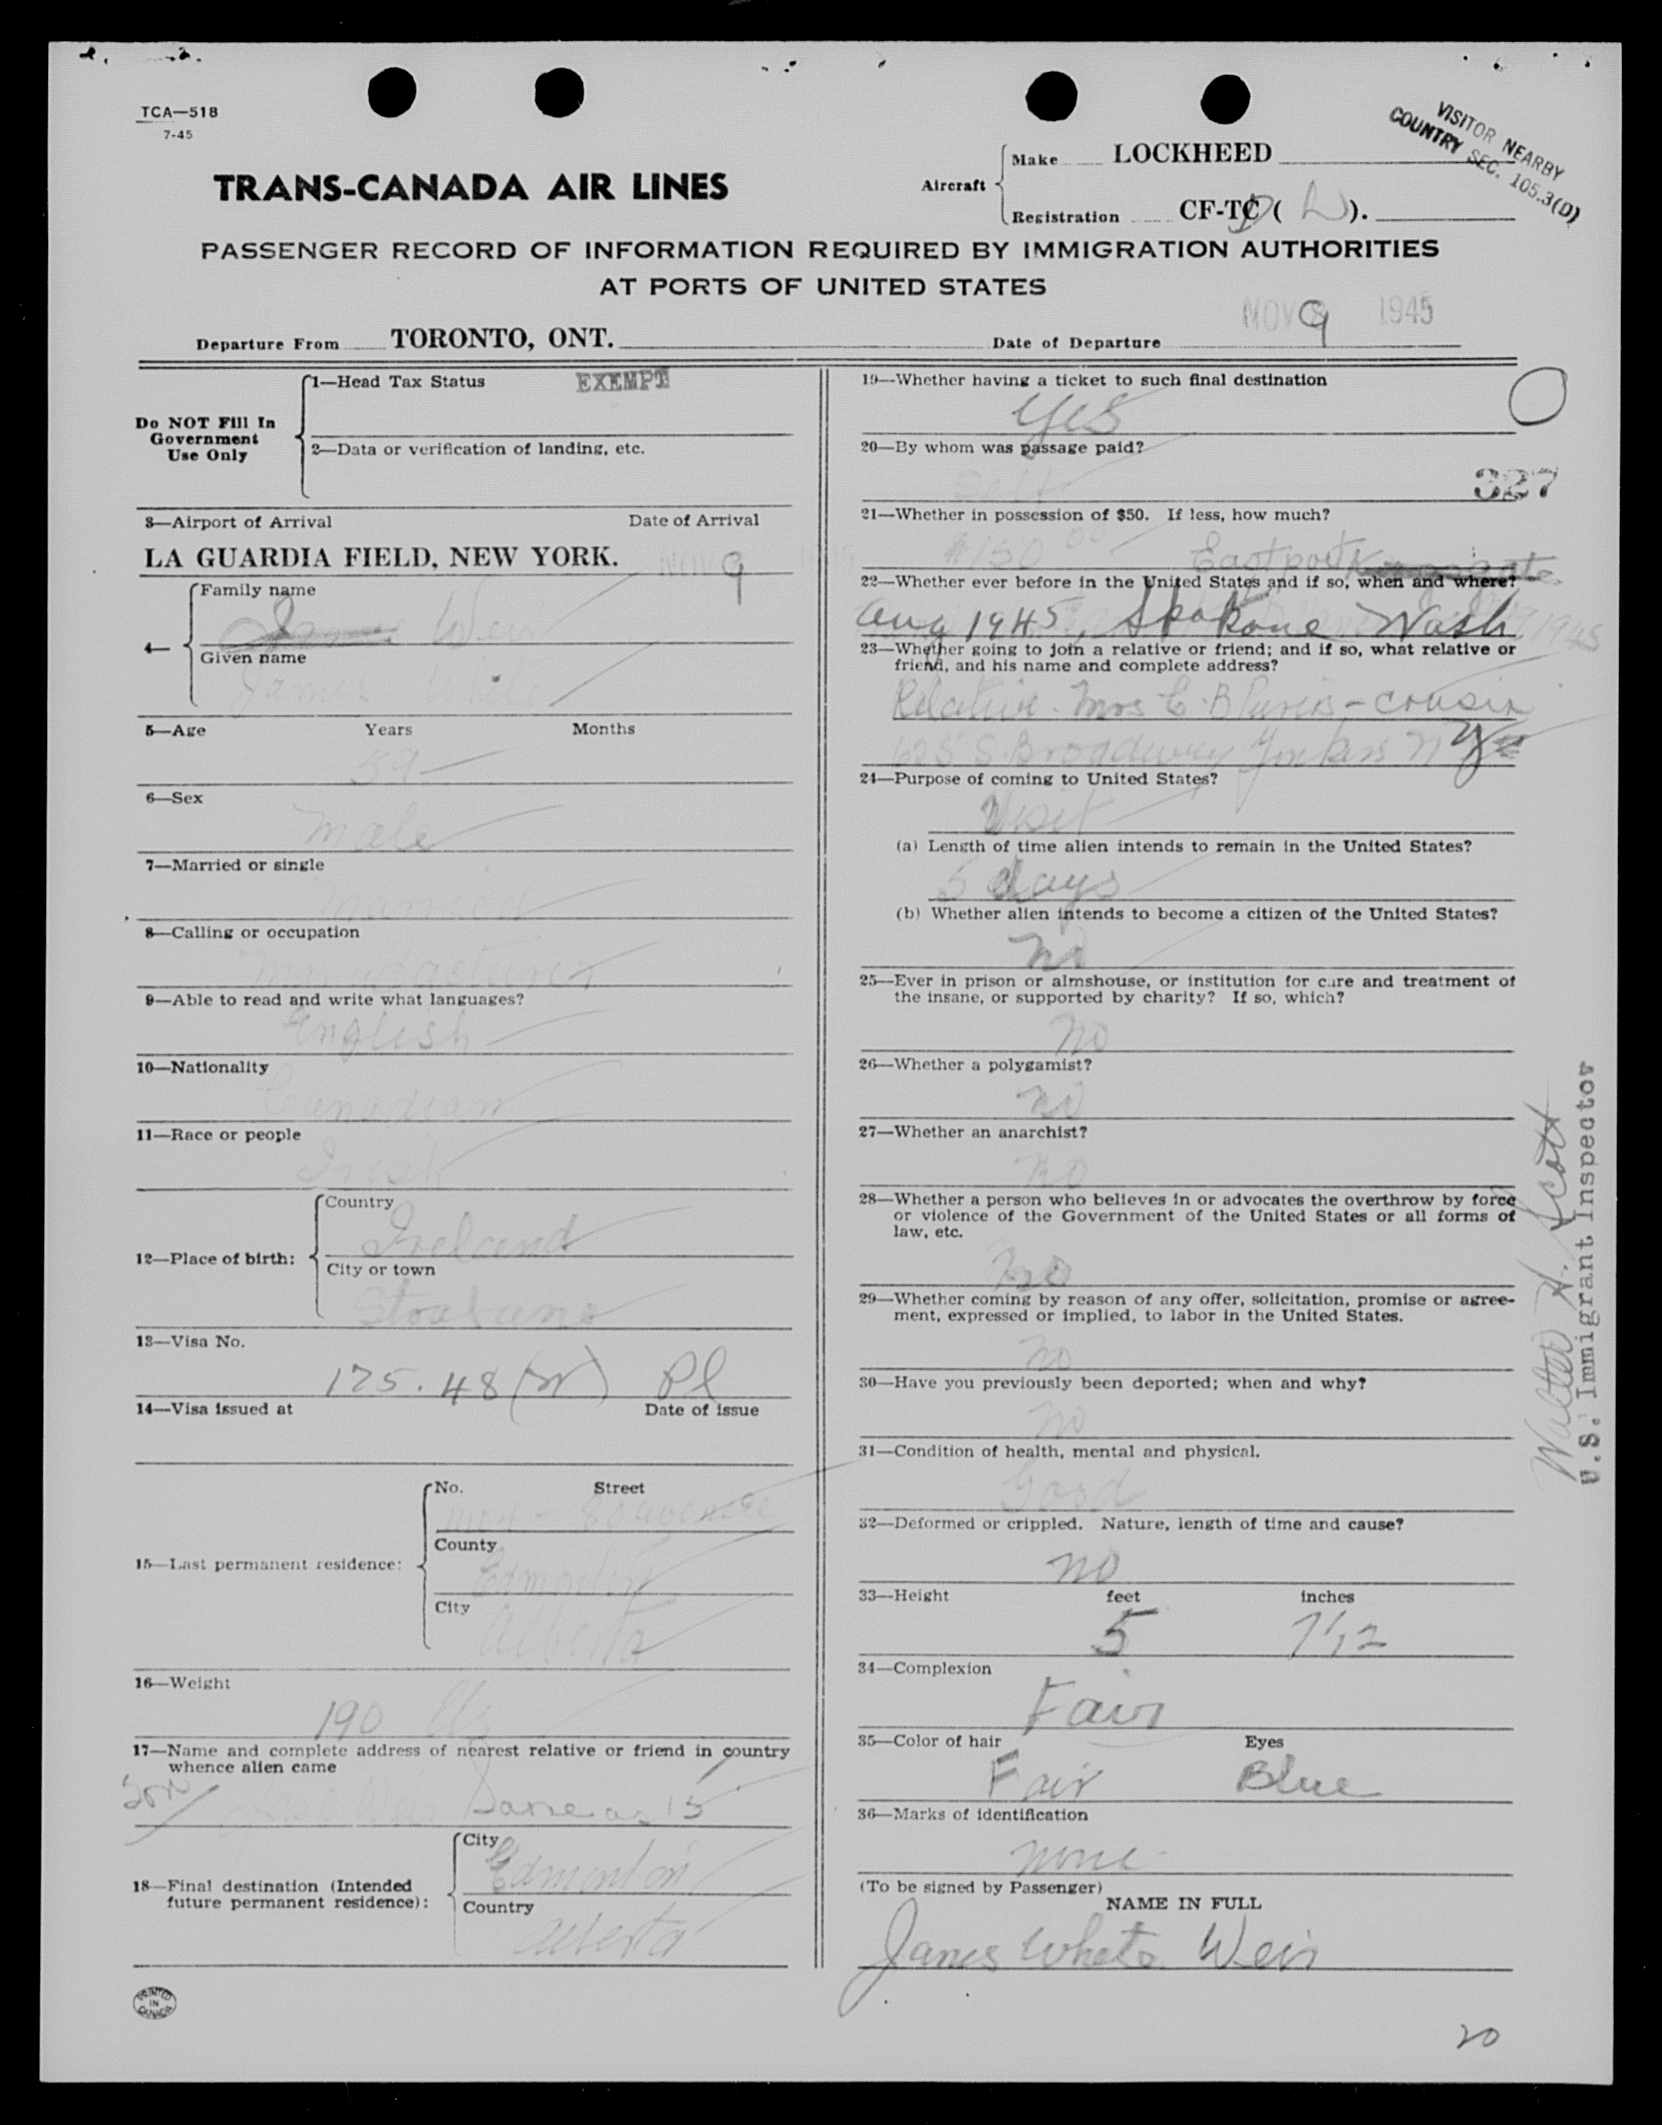 TCA—518
7-45
VISITOR NEARBY
COUNTRY SEC. 105.3(D)
TRANS-CANADA AIR LINES
Aircraft
Make LOCKHEED
Registration CF-TC ( ).
PASSENGER RECORD OF INFORMATION REQUIRED BY IMMIGRATION AUTHORITIES
AT PORTS OF UNITED STATES
Departure From TORONTO, ONT.
Date of Departure NOV 9 1945
Do NOT Fill In
Government
Use Only
1—Head Tax Status EXEMPT
2—Data or verification of landing, etc.
3—Airport of Arrival Date of Arrival
LA GUARDIA FIELD, NEW YORK. NOV 9
4—
Family name
Weir
Given name
James White
5—Age Years Months
59
6—Sex
Male
7—Married or single
Married
8—Calling or occupation
Manufacturer
9—Able to read and write what languages?
English
10—Nationality
Canadian
11—Race or people
Irish
12—Place of birth:
Country
Ireland
City or town
13—Visa No.
175.48 (W) Pl
14—Visa issued at Date of issue
15—Last permanent residence:
No. Street
County
Edmonton
City
Alberta
16—Weight
190 lbs
17—Name and complete address of nearest relative or friend in country
whence alien came
Son
Same as 15
18—Final destination (Intended
future permanent residence):
City
Edmonton
Country
Alberta
PRINTED
IN
CANADA
19—Whether having a ticket to such final destination
Yes
20—By whom was passage paid?
Self
327
21—Whether in possession of $50. If less, how much?
$150 00
Eastport
22—Whether ever before in the United States and if so, when and where?
Aug 1945, Spokane Wash
23—Whether going to join a relative or friend; and if so, what relative or
friend, and his name and complete address?
Relative. Mrs E. B - cousin
S. Broadway Yonkers N Y
24—Purpose of coming to United States?
Visit
(a) Length of time alien intends to remain in the United States?
5 days
(b) Whether alien intends to become a citizen of the United States?
No
25—Ever in prison or almshouse, or institution for care and treatment of
the insane, or supported by charity? If so, which?
No
26—Whether a polygamist?
No
27—Whether an anarchist?
No
28—Whether a person who believes in or advocates the overthrow by force
or violence of the Government of the United States or all forms of
law, etc.
No
29—Whether coming by reason of any offer, solicitation, promise or agree-
ment, expressed or implied, to labor in the United States.
No
30—Have you previously been deported; when and why?
No
31—Condition of health, mental and physical.
Good
32—Deformed or crippled. Nature, length of time and cause?
No
33—Height feet inches
5 7 1/2
34—Complexion
Fair
35—Color of hair Eyes
Fair Blue
36—Marks of identification
None
(To be signed by Passenger)
NAME IN FULL
James White Weir
Walter H. Scott
U.S. Immigrant Inspector
20